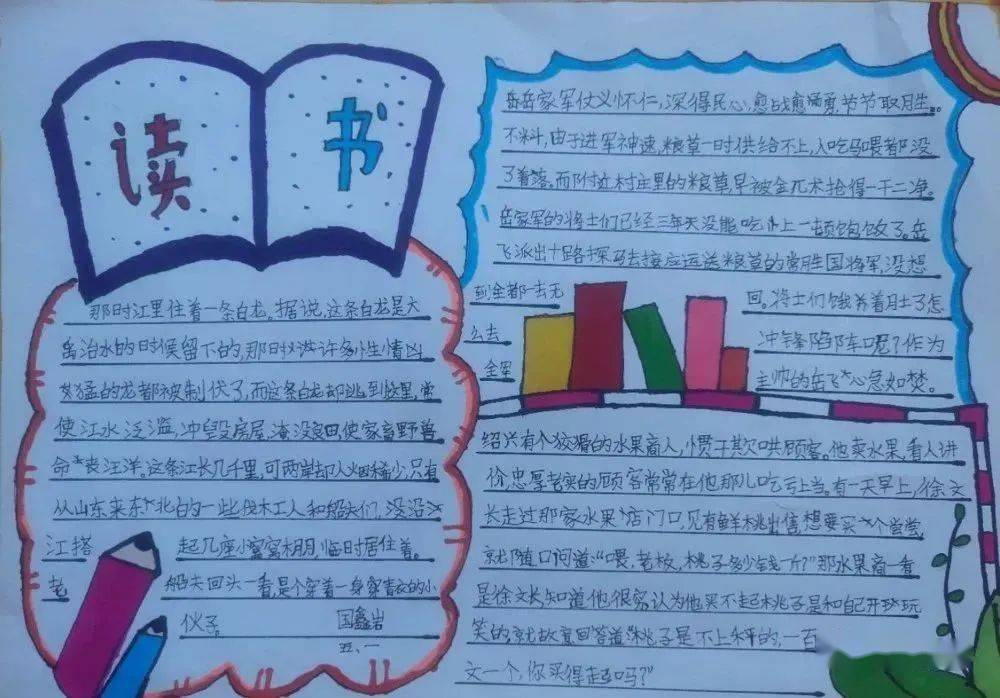 读书
那时江里住着一条白龙。据说,这条白龙是大
禹治水的时候留下的,那时许多性情凶
猛的龙都被制伏了,而这条白龙却逃到这里,常
使江水泛滥,冲毁房屋,淹没良田使家畜野兽
命丧汪洋。这条江长几千里,可两岸却人烟稀少,只有
从山东来东北的一些伐木工人和船夫们,没沿
江搭起几座小窝窝棚,临时居住着。
老船夫回头一看,是个穿着一身穿青衣的小
伙子。
国鑫岩
五、一
岳岳家军仗义怀仁,深得民心,愈战愈勇,节节取胜。
不料,由于进军神速,粮草一时供给不上,人吃马喂都没
了着落。而附近村庄里的粮草,早被金兀术抢得一干二净。
岳家军的将士们已经三年天没能吃上一顿饱饭了。岳
飞派出十路探马去接应运送粮草的常胜国将军,没想
到全都一去无回。将士们饿着肚子怎
么去冲锋陷阵呢?作为
全军主帅的岳飞心急如焚。
绍兴有个狡猾的水果商人,惯于欺哄顾客。他卖水果,看人讲
价,忠厚老实的顾客常常在他那儿吃亏上当。有一天早上,徐文
长走过那家水果店门口,见有鲜桃出售,想要买个尝尝,
就随口问道:“喂,老板,桃子多少钱一斤?”那水果商一看
是徐文长,知道他很穷,认为他买不起桃子,是和自己开玩
笑的,就故意回答道:“桃子是不上秤的,一百
文一个,你买得起吗?”